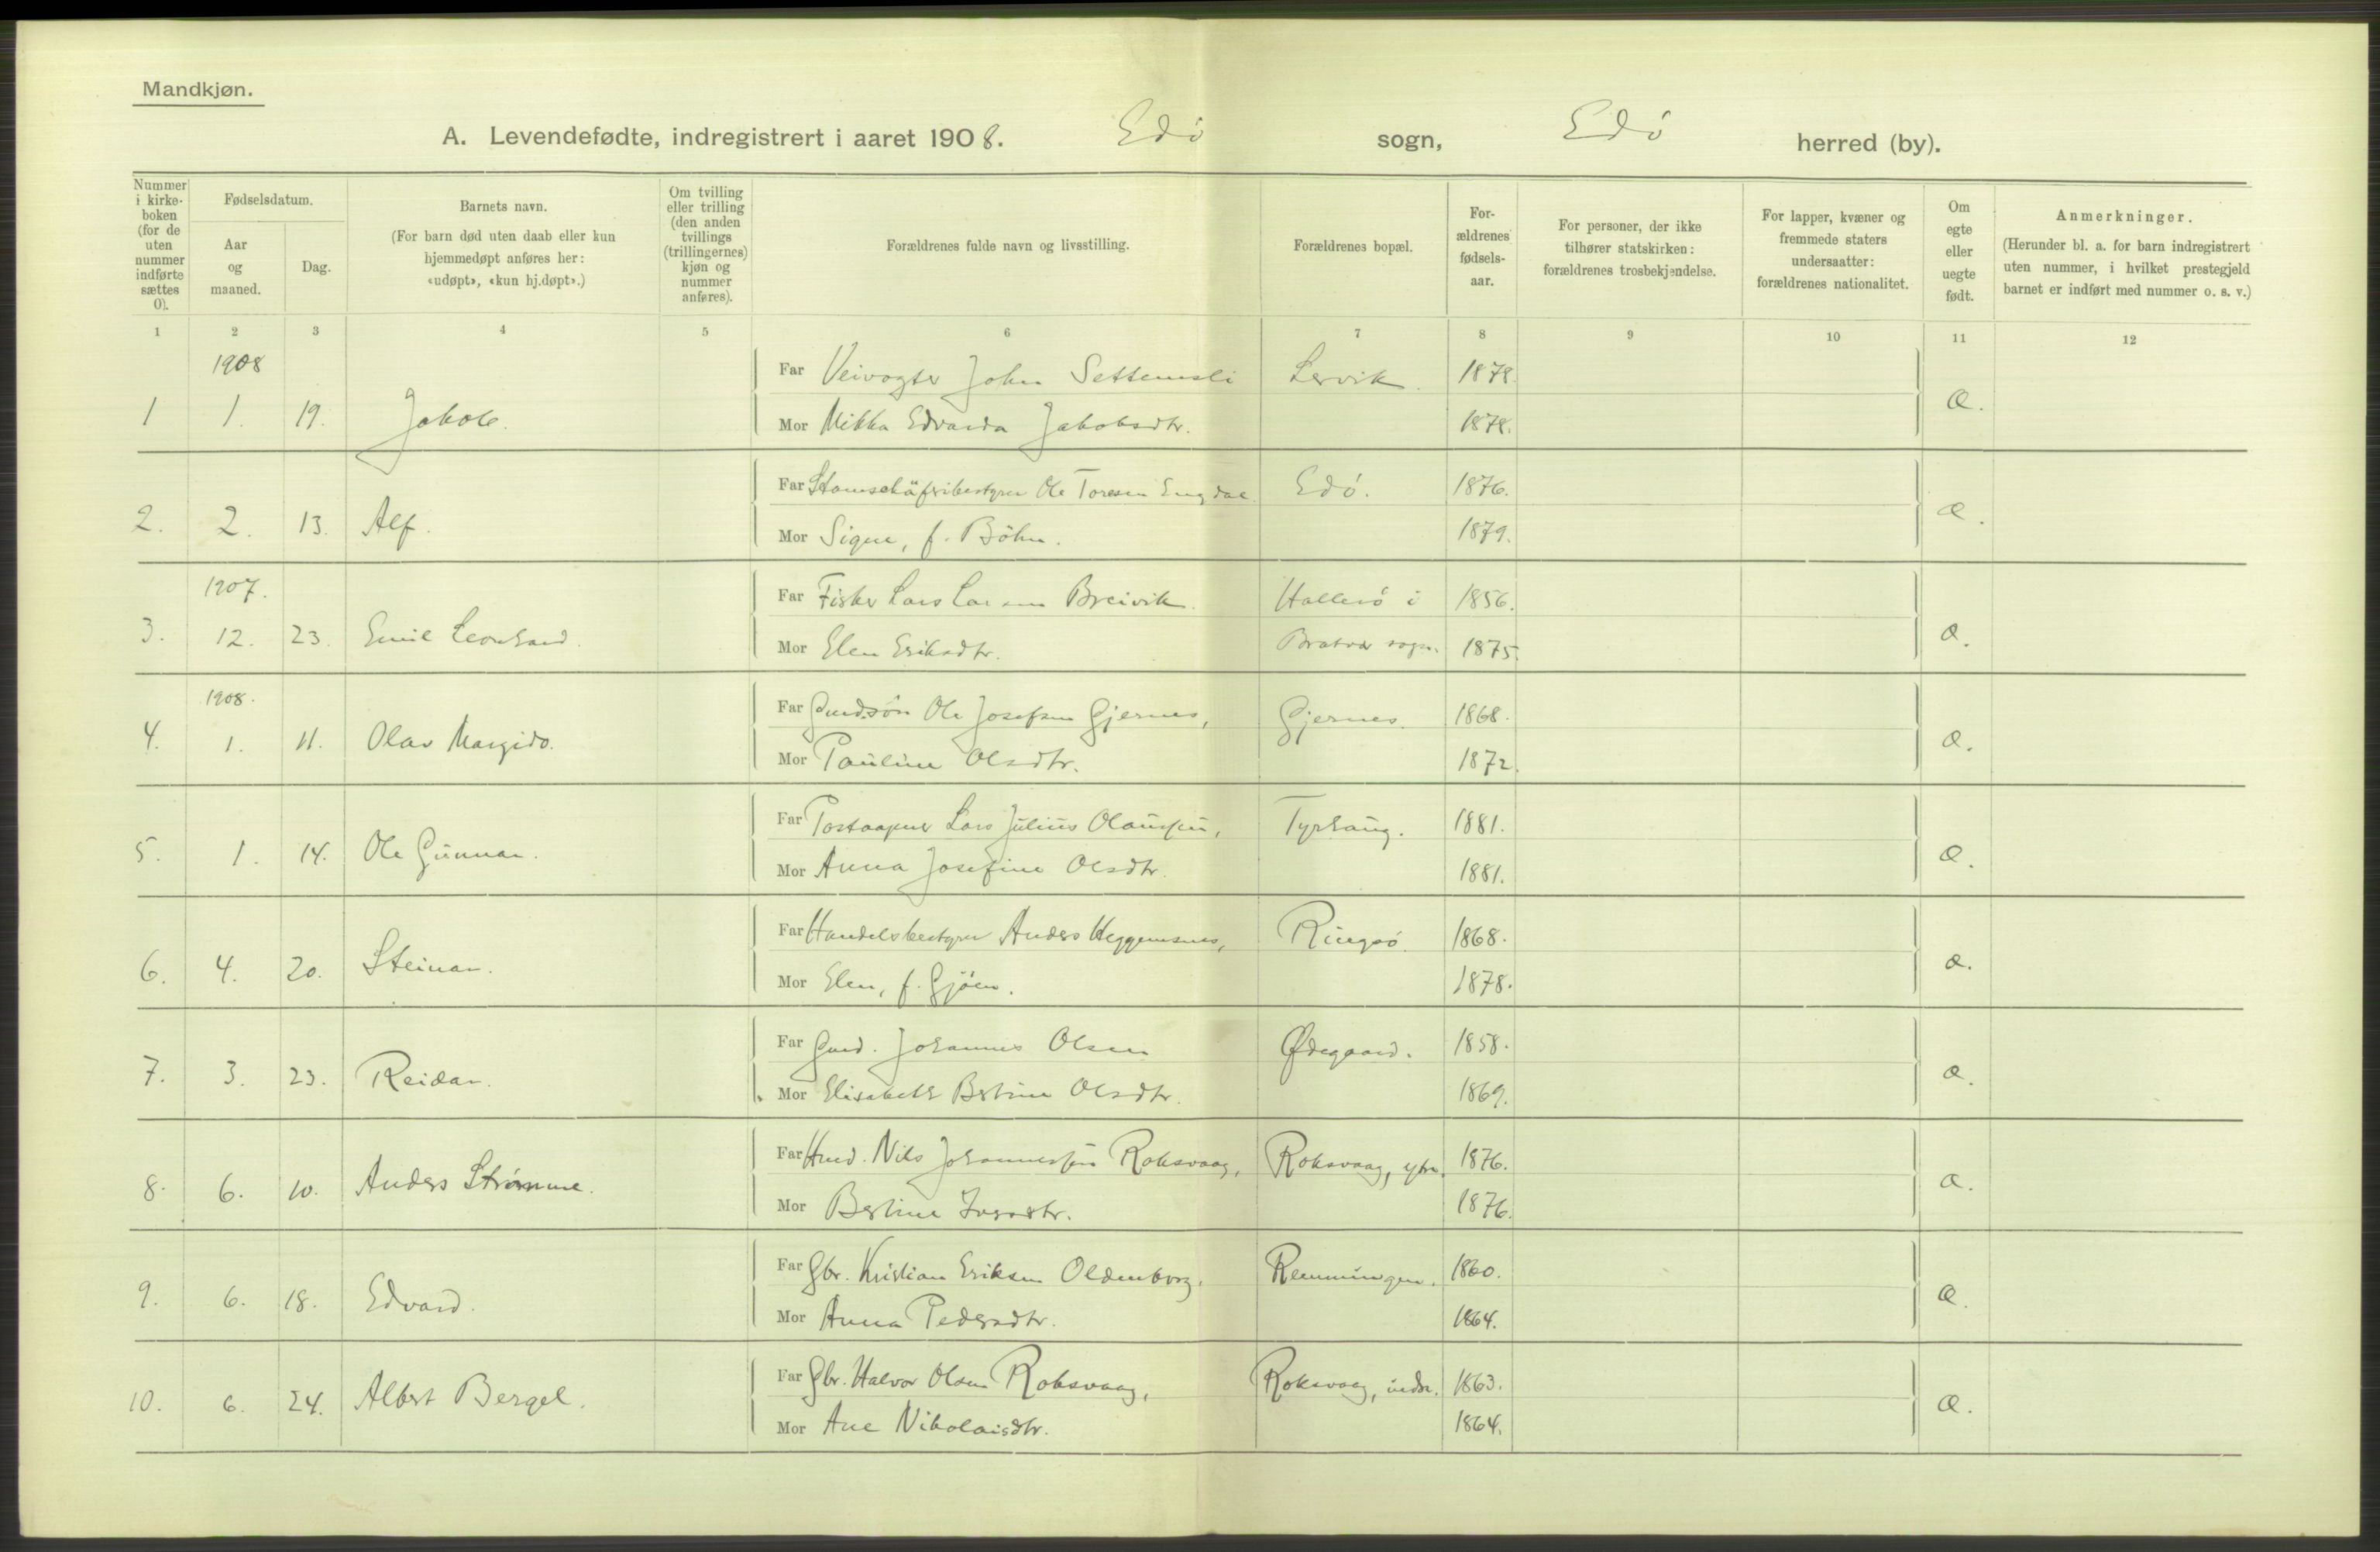 Mandkjøn.
A. Levendefødte, indregistrert i aaret 1908. Edö sogn, Edö herred (by).
Nummer i kirkeboken (for de uten nummer indførte sættes 0).
Fødselsdatum.
Aar og maaned.
Dag.
Barnets navn.
(For barn død uten daab eller kun hjemmedøpt anføres her: «udøpt», «kun hj.døpt».)
Om tvilling eller trilling (den anden tvillings (trillingernes) kjøn og nummer anføres).
Forældrenes fulde navn og livsstilling.
Forældrenes bopæl.
Forældrenes fødselsaar.
For personer, der ikke tilhører statskirken: forældrenes trosbekjendelse.
For lapper, kvæner og fremmede staters undersaatter: forældrenes nationalitet.
Om egte eller uegte født.
Anmerkninger.
(Herunder bl. a. for barn indregistrert uten nummer, i hvilket prestegjeld barnet er indført med nummer o. s. v.)
1 2 3 4 5 6 7 8 9 10 11 12
1908
Far Veivogter John Settemsli Lervik. 1878.
1 1. 19. Jakob. Mor Mikka Edvarda Jakobsdtr. 1878. æ.
Far Ole Toresen Engdal Edö. 1876.
2. 2. 13. Alf. Mor Signe, f. Böhn. 1879. æ.
1907.
Far Fisker Lars Larsen Breivik. Hallerö i 1856.
3. 12. 23. Emil Leonhard. Mor Elen Eriksdtr. Bratvær sogn. 1875. æ.
1908.
Far Ole Josefsen Gjernes, Gjernes. 1868.
4. 1. 11. Olav Margido. Mor Pauline Olsdtr. 1872. æ.
Far Postaapner Lars Julius Olaussen, Tyrhaug. 1881.
5. 1. 14. Ole Gunnar. Mor Anna Josefine Olsdtr. 1881. æ.
Far Handelsbestyrer Anders Heggemsnes, Ringsö. 1868.
6. 4. 20. Steinar. Mor Elen, f. Gjöen. 1878. æ.
Far Johannes Olsen Ødegaard. 1858.
7. 3. 23. Reidar. Mor Elisabeth Bertine Olsdtr. 1869. æ.
Far Hmd. Nils Johannessen Roksvaag, Roksvaag, ytre. 1876.
8. 6. 10. Anders Strømme. Mor Bertine Iversdtr. 1876. æ.
Far Gbr. Kristian Eriksen Oldenborg. Remmingen. 1860.
9. 6. 18. Edvard. Mor Anna Pedersdtr. 1864. æ.
Far Gbr. Halvor Olsen Roksvaag, Roksvaag, indre. 1863.
10. 6. 24. Albert Bergel. Mor Ane Nikolaisdtr. 1864. æ.